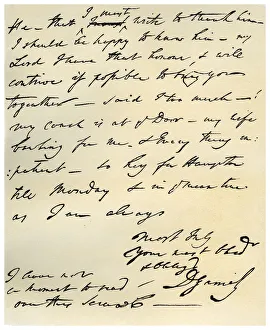 He - that I must write to thank him -
I should be happy to know him - my
Lord I have that honour, & will
contrive if possible to bring you
together - said I too much - !
my Coach is at ye Door - my Wife
bawling for me, & Every thing im
:patient - to key for Hampton
till Monday & in ye mean time
as I am always
most truly
Your most Obdt
& Oblig'd
D Garrick
I have not
a moment to read
over this Scrawl -